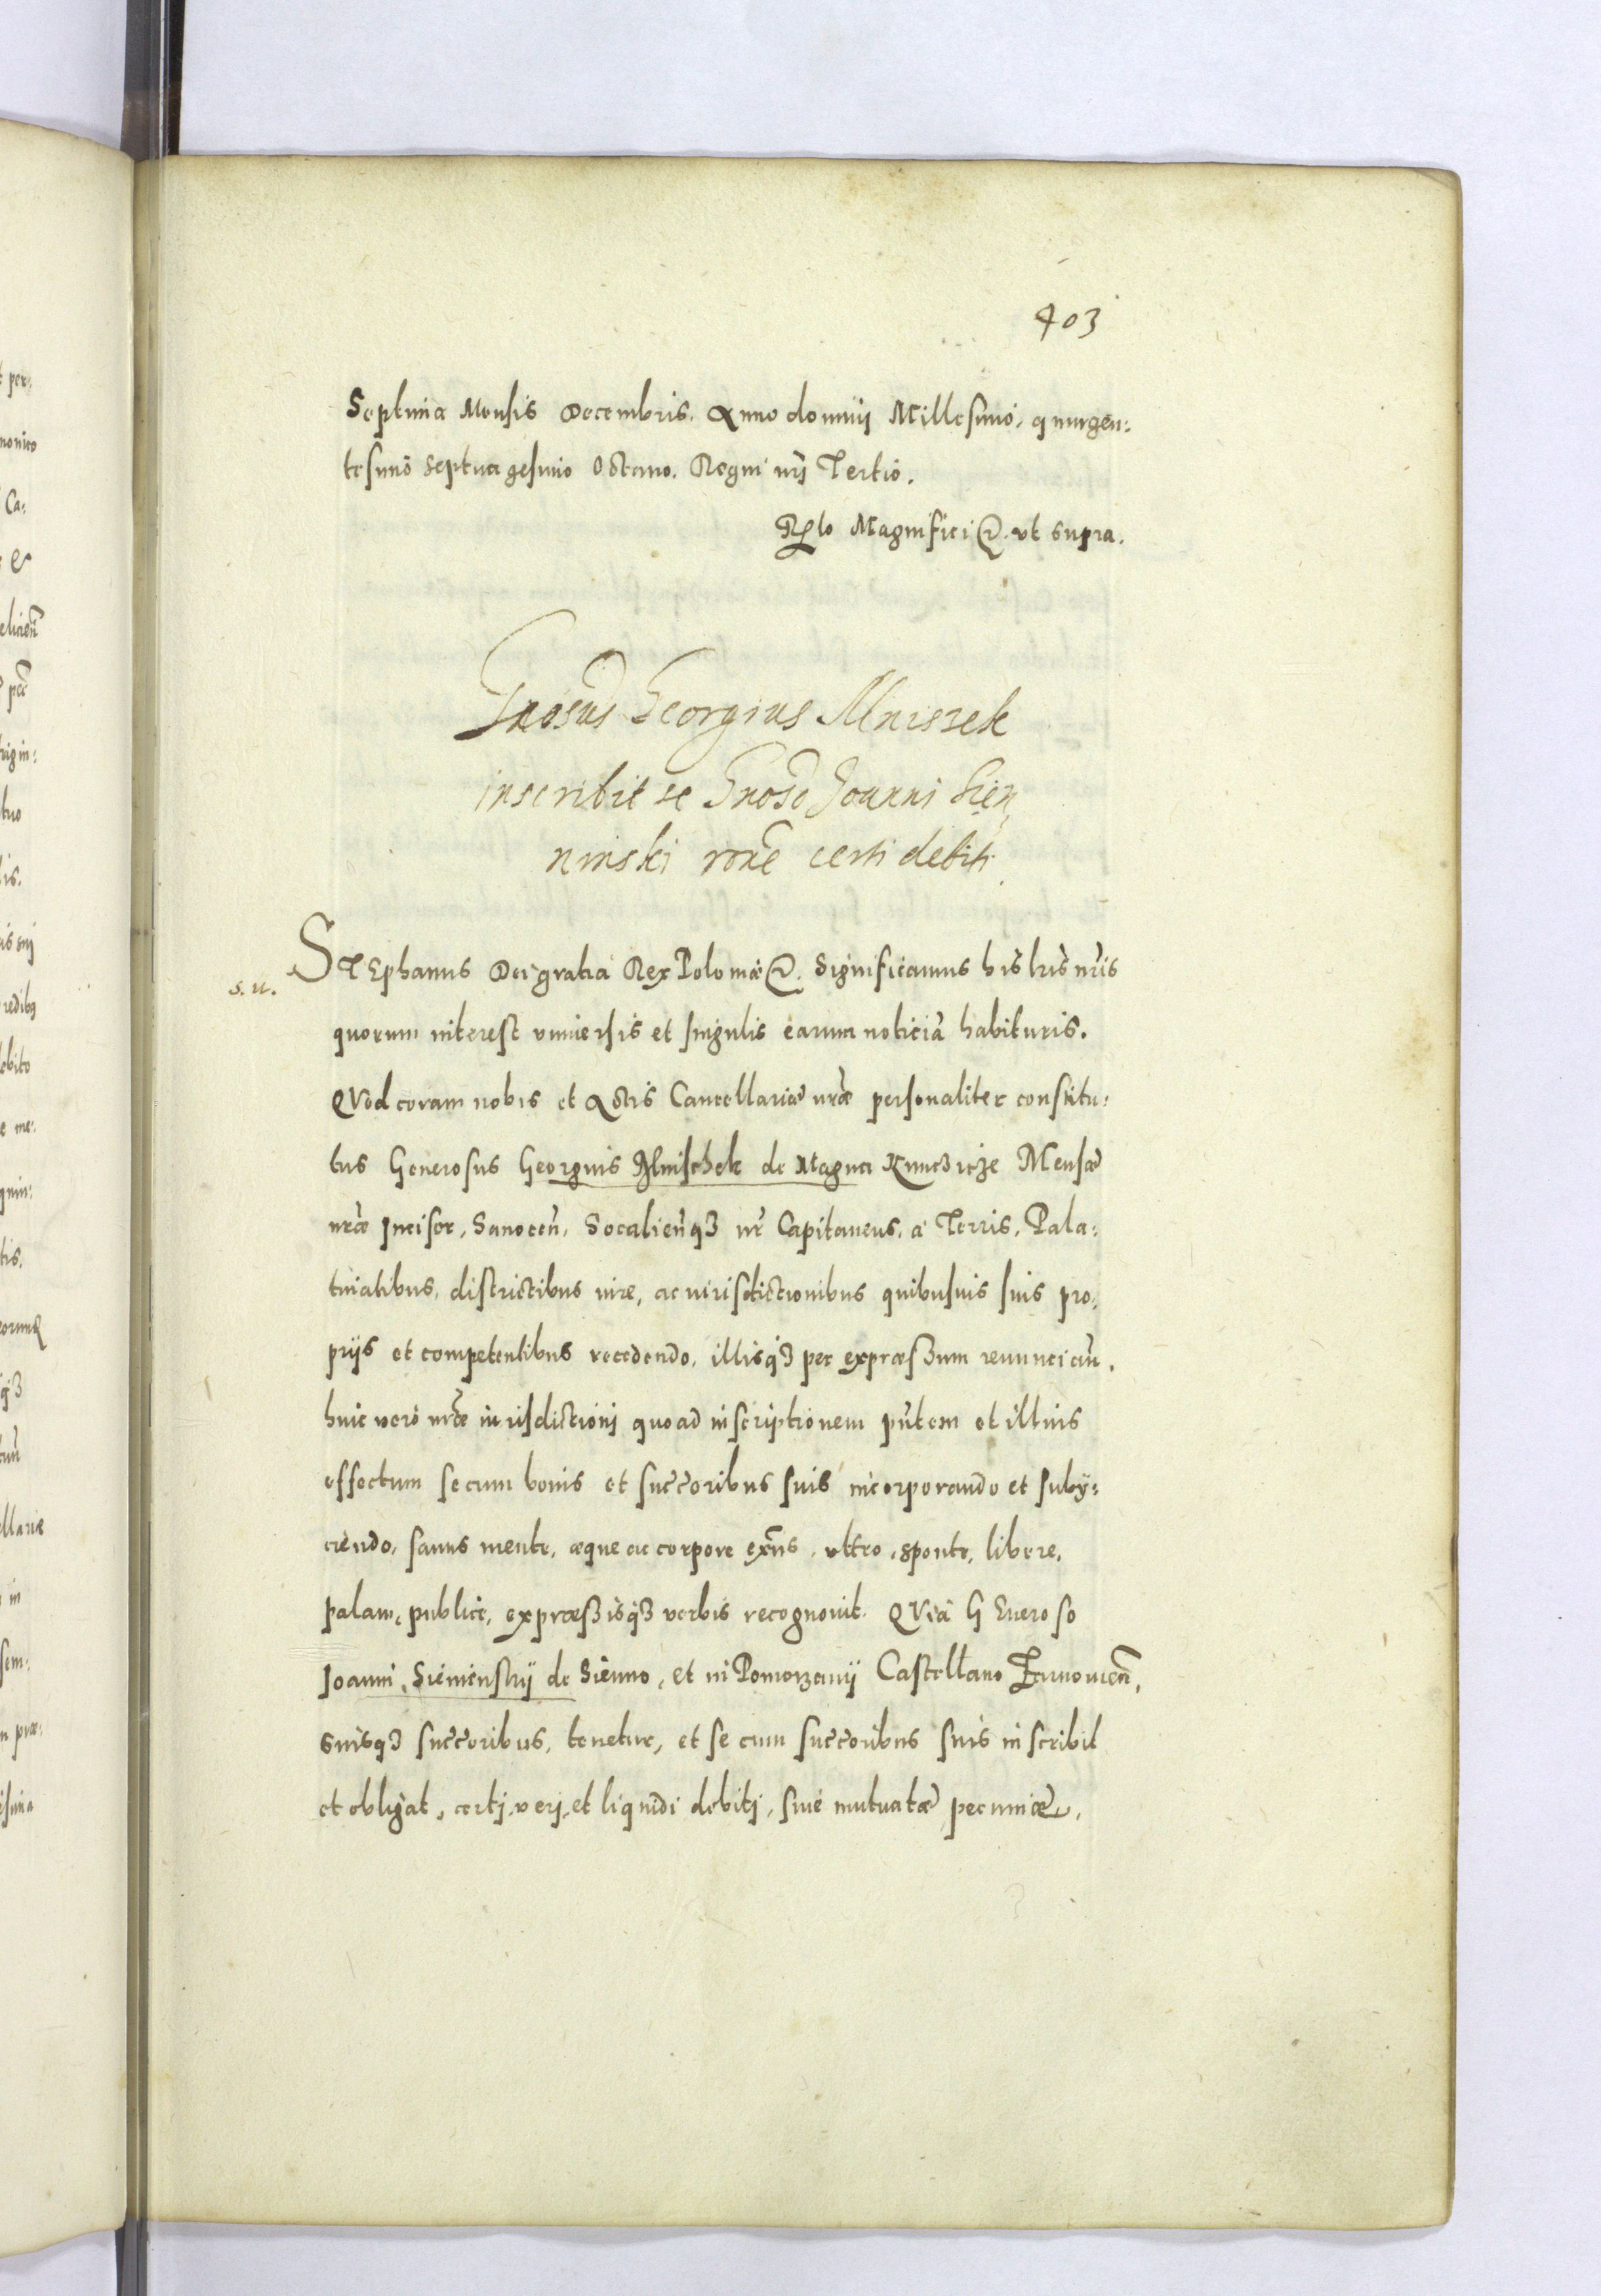 403
Septima Mensis Decembris. Anno dominij Millesimo, quingen:
tesimo septuagesimo Octauo. Regni nrĩ Tertio.
Rlo Magnifici &. vt supra.
Gnosus Georgius Mniszek
inscribit se Gnoso Joanni Sien
ninski rone certi debiti
STEphanus Dei gratia Rex Poloniæ &. Significamus his lris nris
s. u.
quorum interest vniuersis et singulis earum noticiã habituris.
QVod coram nobis et Actis Cancellariæ nræ personaliter constitu:
tus Generosus Georgius Mnischek de Magna Kuncziçze Mensæ
nræ Incisor, Sanocen̄, Socalien̄qʒ nr̄ Capitaneus, a Terris, Pala:
tinatibus, districtibus iure, ac iurisdictionibus quibusuis suis pro:
prijs et competentibus recedendo, illisqʒ per expræsʒum renuncian̄.
huic vero nræ iurisdictioni quoad inscriptionem pn̄tem et illius
effectum se cum bonis et succ̄oribus suis incorporando et suby:
ciendo, sanus mente, æque ac corpore exn̄s, vltro, sponte, libere,
palam, publice, expræsʒisqʒ verbis recognouit. QVia GEneroso
Joanni Sieniensky de Sienno, et in Pomorzany Castellano Zarnouien̄,
suisqʒ succ̄oribus, tenetur, et se cum succ̄oribus suis inscribit
et obligat, certj, verj, et liquidi debitj, siue mutuatæ pecuniæ,